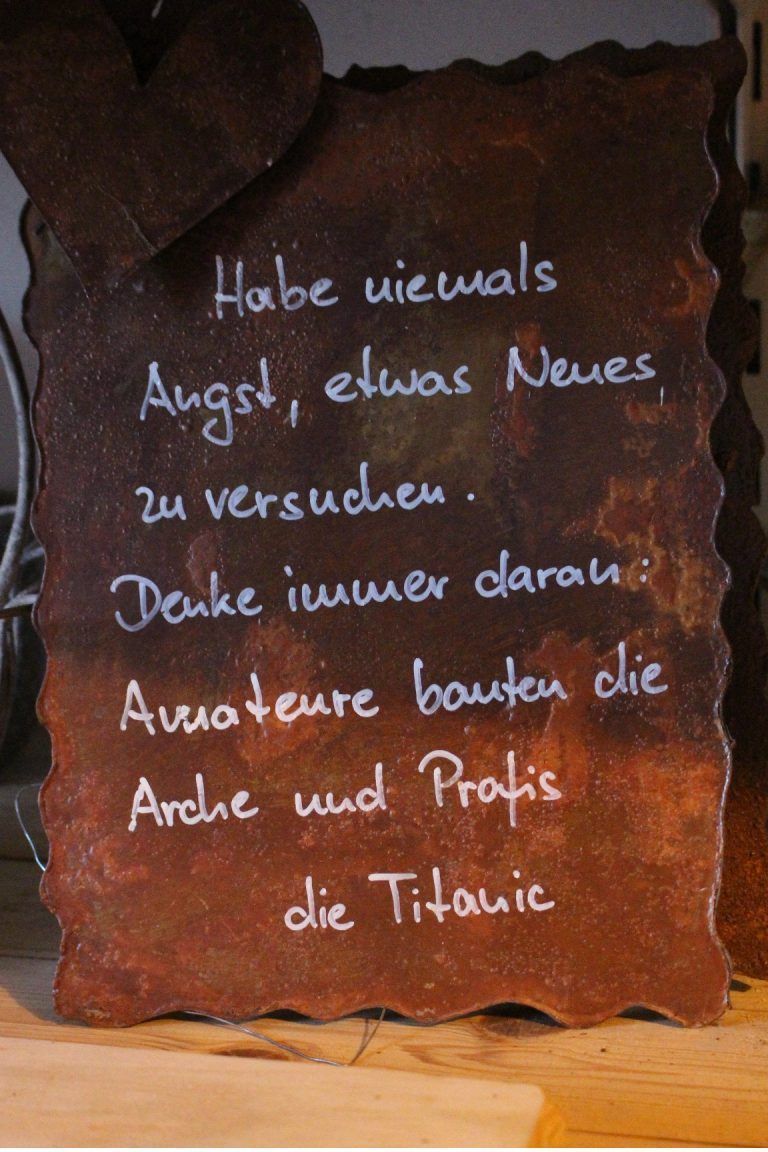 Habe niemals
Angst, etwas Neues,
zu versuchen.
Denke immer daran:
Amateure bauten die
Arche und Profis
die Titanic